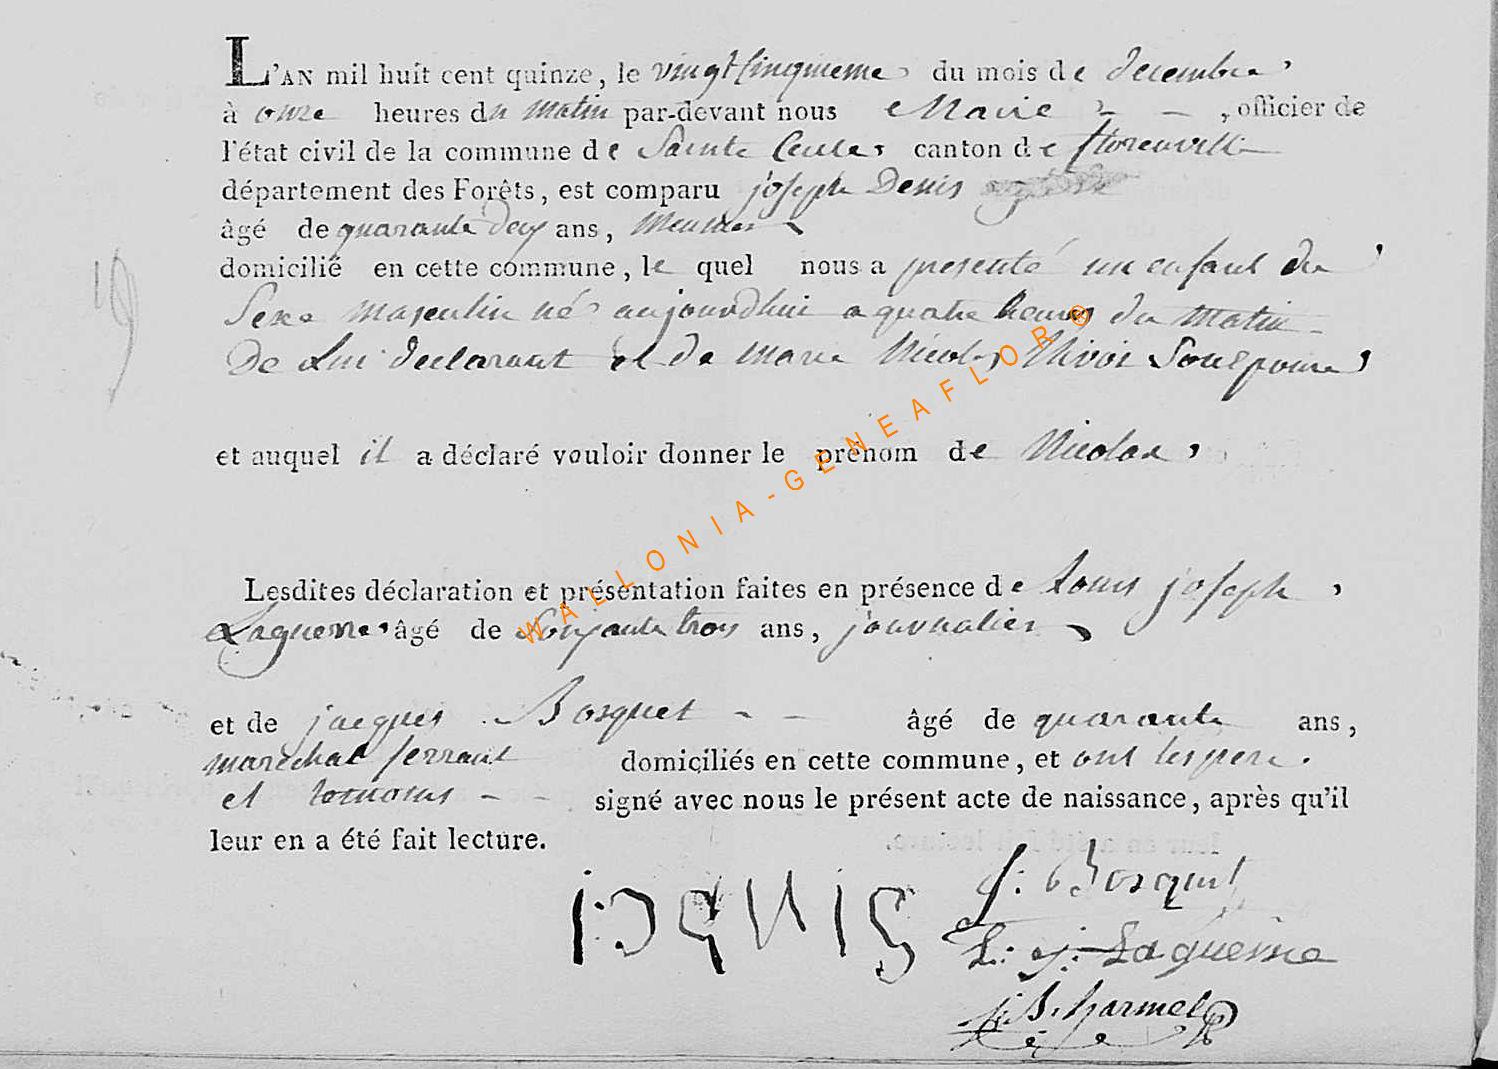 L'AN mil huit cent quinze, le vingt cinquieme du mois de decembre
à onze heures du matin par-devant nous Maire - - , officier de
l'état civil de la commune de Sainte Cecile, canton de florenville
département des Forêts, est comparu joseph Denis
âgé de quarante deux ans, Meunier
domicilié en cette commune, le quel nous a presenté un enfant du
Sexe masculin né aujourdhui a quatre heures du matin -
De Lui declarant et de marie Nicolas Nivoi Son Epouse,
et auquel il a déclaré vouloir donner le prénom de Nicolas,
Lesdites déclaration et présentation faites en présence de Louis joseph,
Laguerre, âgé de Soixante trois ans, journalier,
et de jacques Bosquet - - âgé de quarante ans,
marechal ferrant domiciliés en cette commune, et ont les pere
et temoins - - signé avec nous le présent acte de naissance, après qu'il
leur en a été fait lecture.
i:DENIS
J: Bosquet
L: j: Laguerre
j: B. harmel
19
WALLONIA-GENEAFLOR®